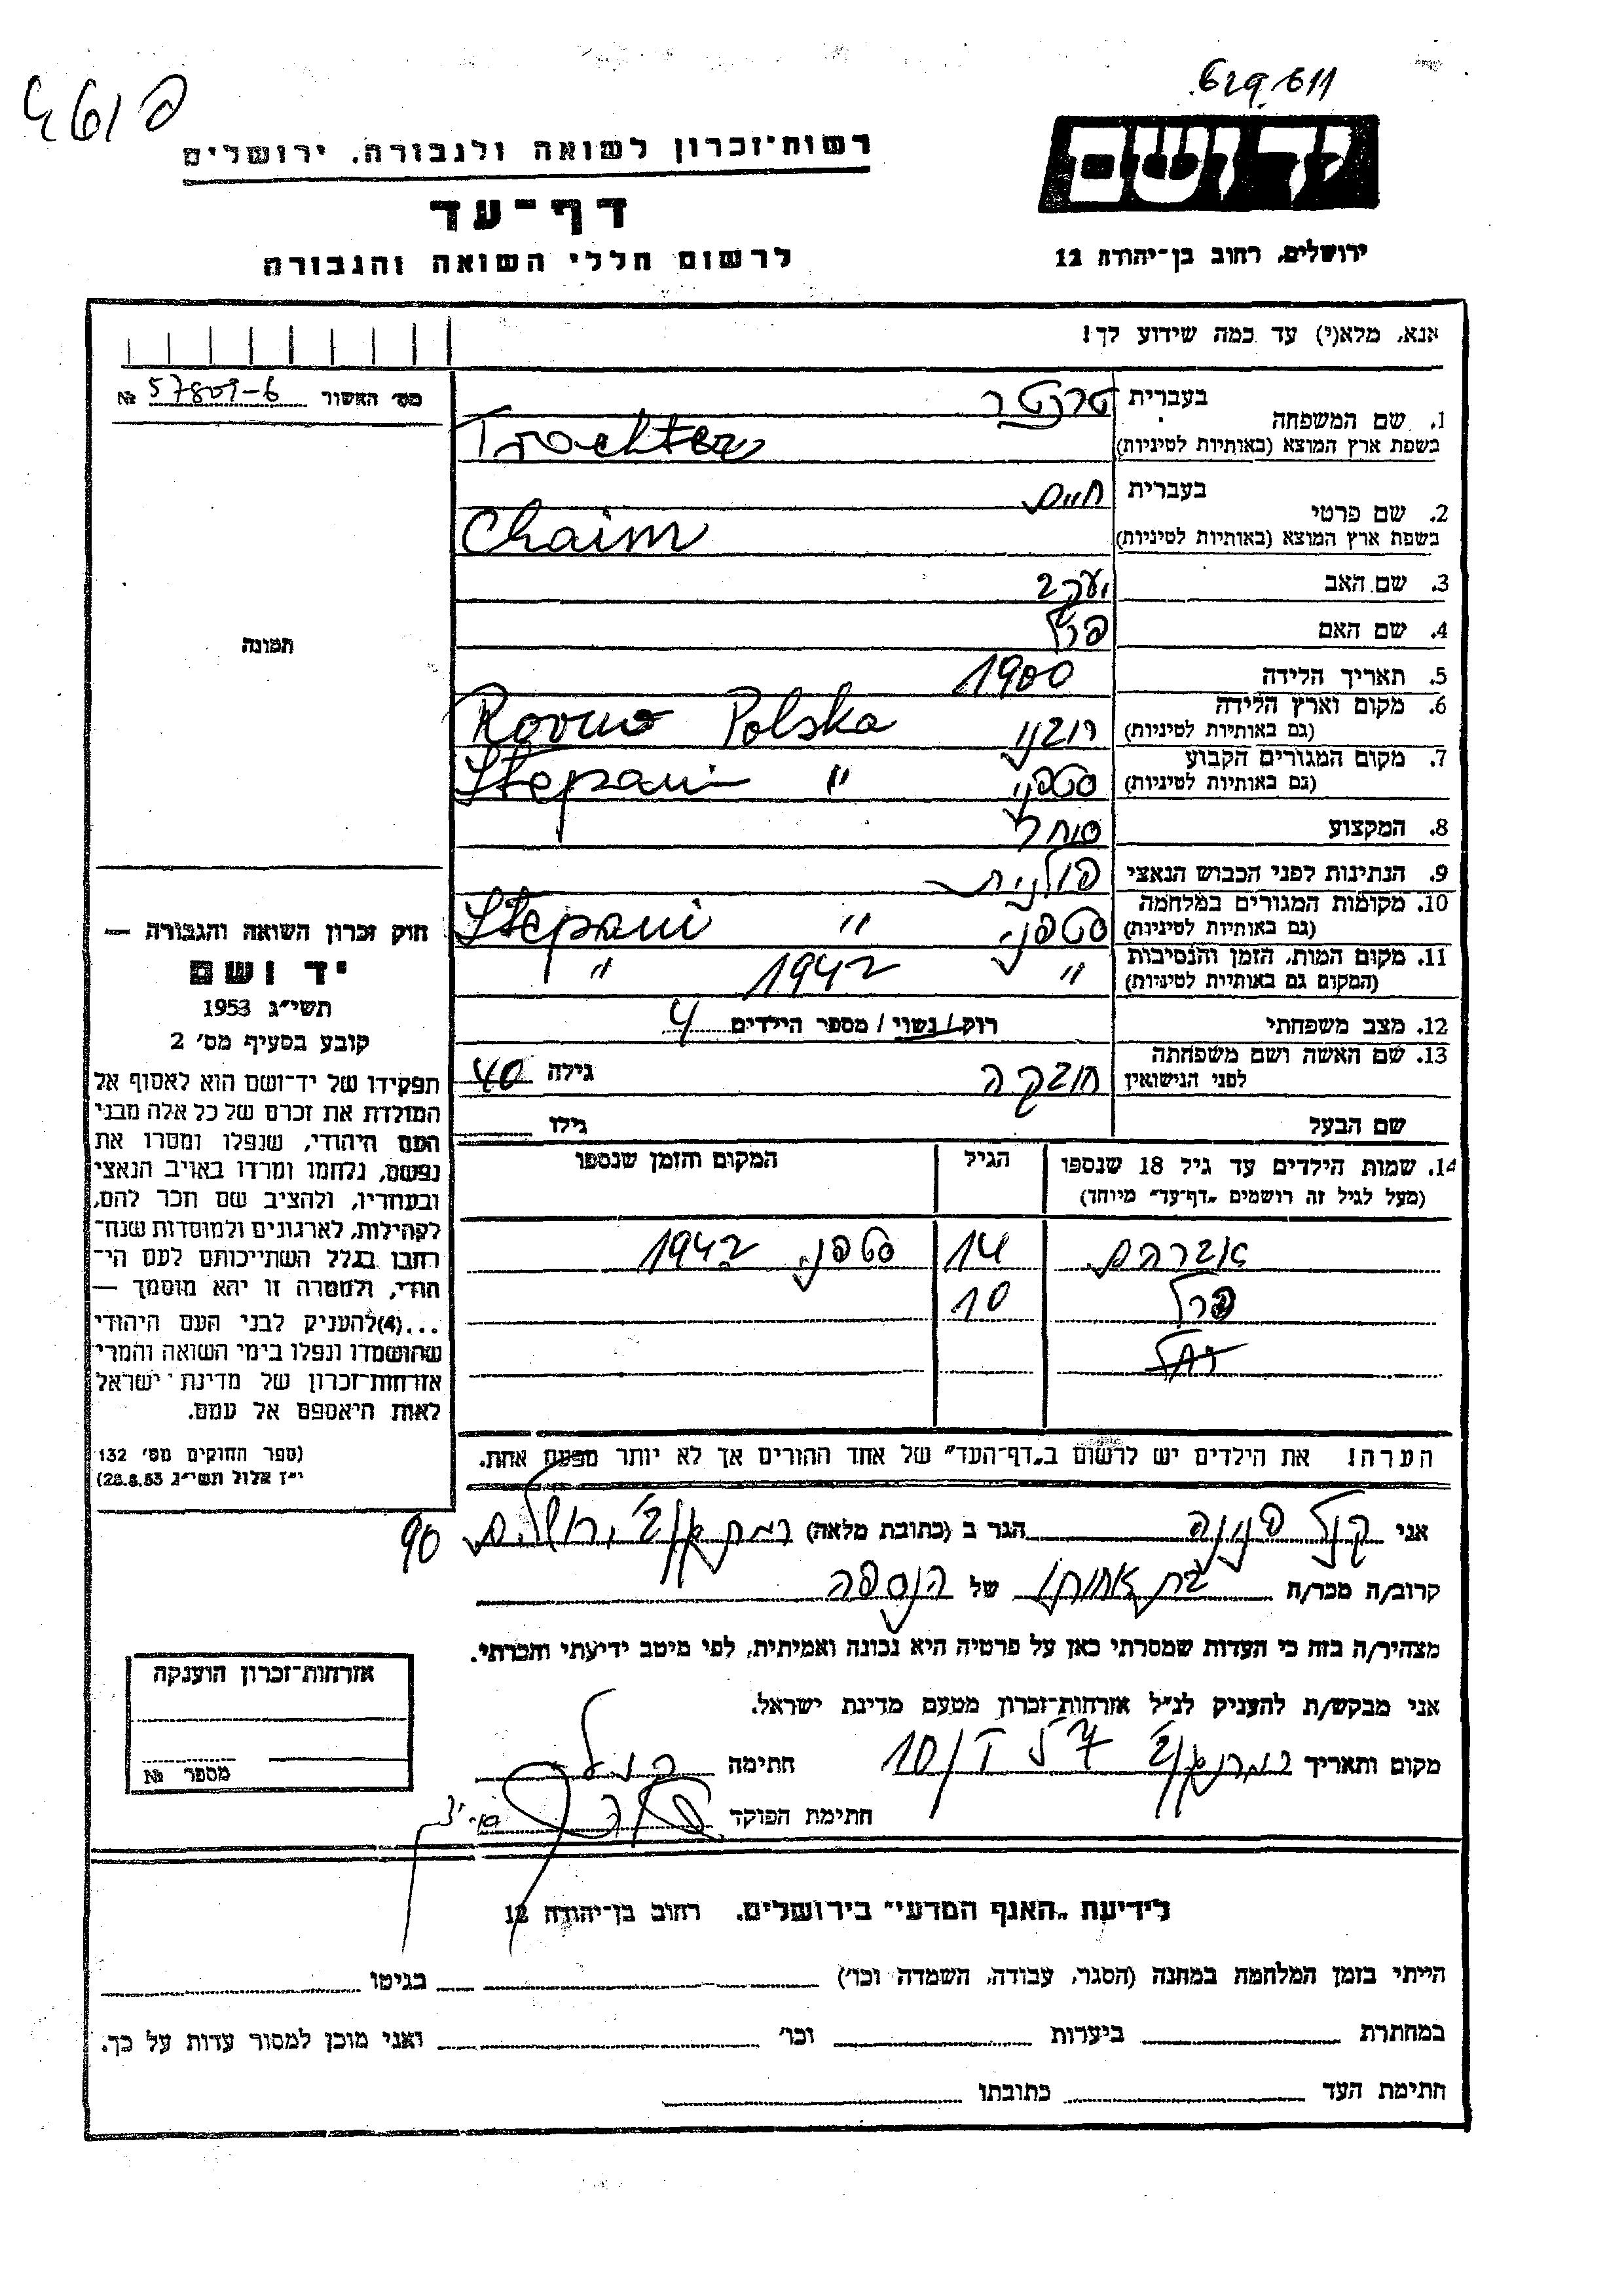 629.611
רשות־זכרון לשואה ולגבורה, ירושלים
דף־עד
לרשום חללי השואה והגבורה
יד ושם
ירושלים, רחוב בן־יהודה 12
אנא, מלא(י) עד כמה שידוע לך!
מס׳ האשור 57809-6 №
תמונה
1. שם המשפחה
בעברית
בשפת ארץ המוצא (באותיות לטיניות) Trachter
2. שם פרטי
בעברית חיים
בשפת ארץ המוצא (באותיות לטיניות) Chaim
3. שם האב יעקב
4. שם האם פרל
5. תאריך הלידה 1900
6. מקום וארץ הלידה
(גם באותיות לטיניות) רובנו Rovno Polska
7. מקום המגורים הקבוע
(גם באותיות לטיניות) סטפני " Stepani
8. המקצוע סוחר
9. הנתינות לפני הכבוש הנאצי פולנית
10. מקומות המגורים במלחמה
(גם באותיות לטיניות) סטפני " Stepani
11. מקום המות, הזמן והנסיבות
(המקום גם באותיות לטיניות) " 1942 "
12. מצב משפחתי רווק/נשוי/ מספר הילדים 4
13. שם האשה ושם משפחתה
לפני הנישואין גילה 40
שם הבעל גילו
14. שמות הילדים עד גיל 18 שנספו הגיל המקום והזמן שנספו
(מעל לגיל זה רושמים „דף־עד" מיוחד)
אברהם 14 סטפני 1942
פרל 10
רחל
הערה! את הילדים יש לרשום ב„דף־העד" של אחד ההורים אך לא יותר מפעם אחת.
חוק זכרון השואה והגבורה —
יד ושם
תשי״ג 1953
קובע בסעיף מס׳ 2
תפקידו של יד־ושם הוא לאסוף אל
המולדת את זכרם של כל אלה מבני
העם היהודי, שנפלו ומסרו את
נפשם, נלחמו ומרדו באויב הנאצי
ובעוזריו, ולהציב שם וזכר להם,
לקהילות, לארגונים ולמוסדות שנח־
רחבו בגלל השתייכותם לעם הי־
הודי, ולמטרה זו יהא מוסמך —
...(4)להעניק לבני העם היהודי
שהושמדו ונפלו בימי השואה והמרי
אזרחות־זכרון של מדינת ישראל
לאות היאספם אל עמם.
(ספר החוקים מס׳ 132
י״ז אלול תשי״ג 28.8.53)
אני פנינה הגר ב (כתובת מלאה) ירושלים 90
קרוב/ה מכר/ה בת אחותו של הנספה
מצהיר/ה בזה כי העדות שמסרתי כאן על פרטיה היא נכונה ואמיתית, לפי מיטב ידיעתי והכרתי.
אני מבקש/ת להעניק לנ״ל אזרחות־זכרון מטעם מדינת ישראל.
מקום ותאריך חתימה
חתימת הפוקד
אזרחות־זכרון הוענקה
מספר №
לידיעת „האגף המדעי" בירושלים, רחוב בן־יהודה 12
הייתי בזמן המלחמה במחנה (הסגר, עבודה, השמדה וכו׳) בגיטו
במחתרת ביערות וכו׳ ואני מוכן למסור עדות על כך.
חתימת העד כתובתו